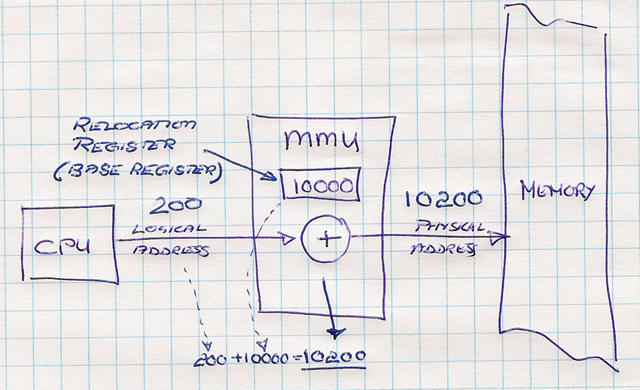 RELOCATION
REGISTER
(BASE REGISTER)
MMU
10000
200
LOGICAL
ADDRESS
CPU
+
10200
PHYSICAL
ADDRESS
MEMORY
200 + 10000 = 10200